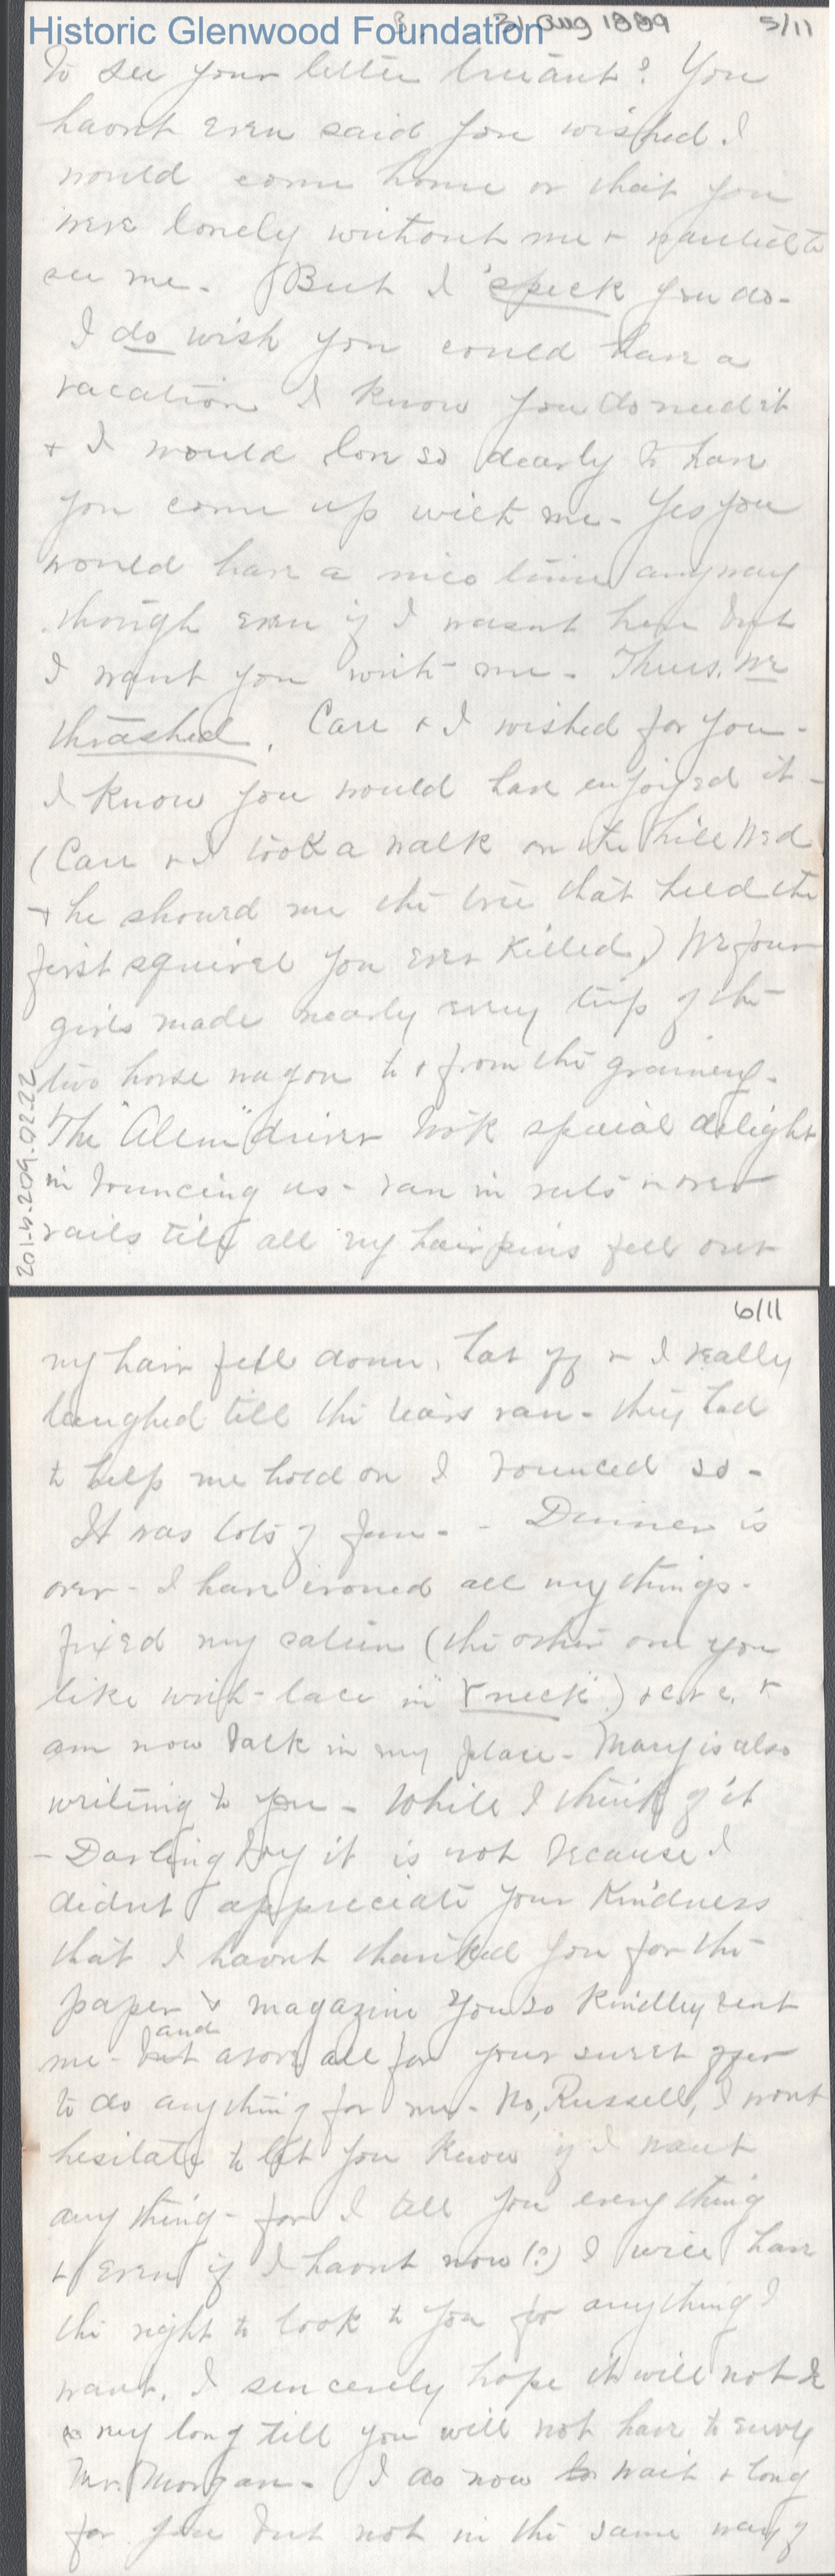 Historic Glenwood Foundation
3. 31 Aug 1889 5/11
to see your letter truant? You
havnt even said you wished I
would come home or that you
were lonely without me & wanted to
see me. But I 'speck you do-
I do wish you could have a
vacation I know you do need it
& I would love so dearly to have
you come up with me- Yes you
would have a nice time anyway
though even if I wasnt here but
I want you with me- Thurs. we
thrashed. Carr & I wished for you-
I know you would have enjoyed it-
(Carr & I took a walk on the hill Wed
& he showed me the tree that held the
first squirel you ever killed.) We four
girls made nearly every trip of the
two horse wagon to & from the grainery-
The "Alem" driver took special delight
in bouncing us- ran in ruts & over
rails till all my hairpins fell out
201.4.209.0222
6/11
my hair fell down, hat off & I really
laughed till the tears ran- they had
to help me hold on I bounced so-
It was lots of fun- - Dinner is
over- I have ironed all my things-
fixed my sateen (the other one you
like with lace in "V neck") & c. & c. &
am now back in my place- Mary is also
writing to you- While I think of it
- Darling boy it is not because I
didnt appreciate your kindness
that I havnt thanked you for the
paper & magazine you so kindley sent
me- but and above all for your sweet offer
to do anything for me- No, Russell, I wont
hesitate to let you know if I want
any thing- for I tell you every thing
& even if I havnt now (?) I will have
the right to look to you for anything I
want. I sincerely hope it will not be
my long till you will not have to envy
Mr. Morgan- I do now wait & long
for you but not in the same way of